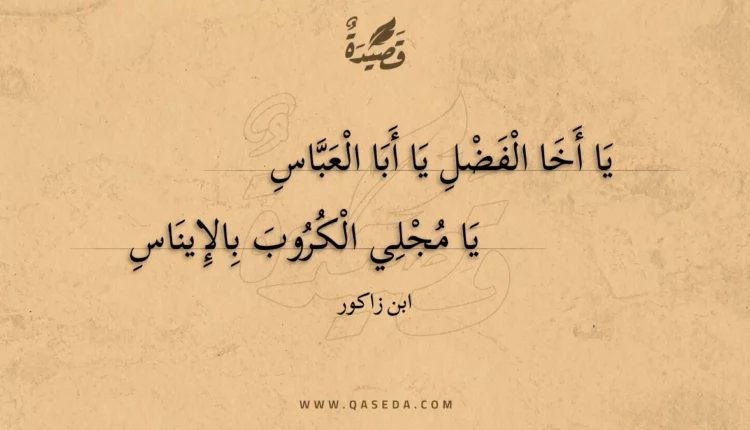 قَصِيْدَةٌ
يَا أَخَا الْفَضْلِ يَا أَبَا الْعَبَّاسِ
يَا مُجْلِي الْكُرُوبَ بِالإِينَاسِ
ابن زاكور
WWW.QASEDA.COM